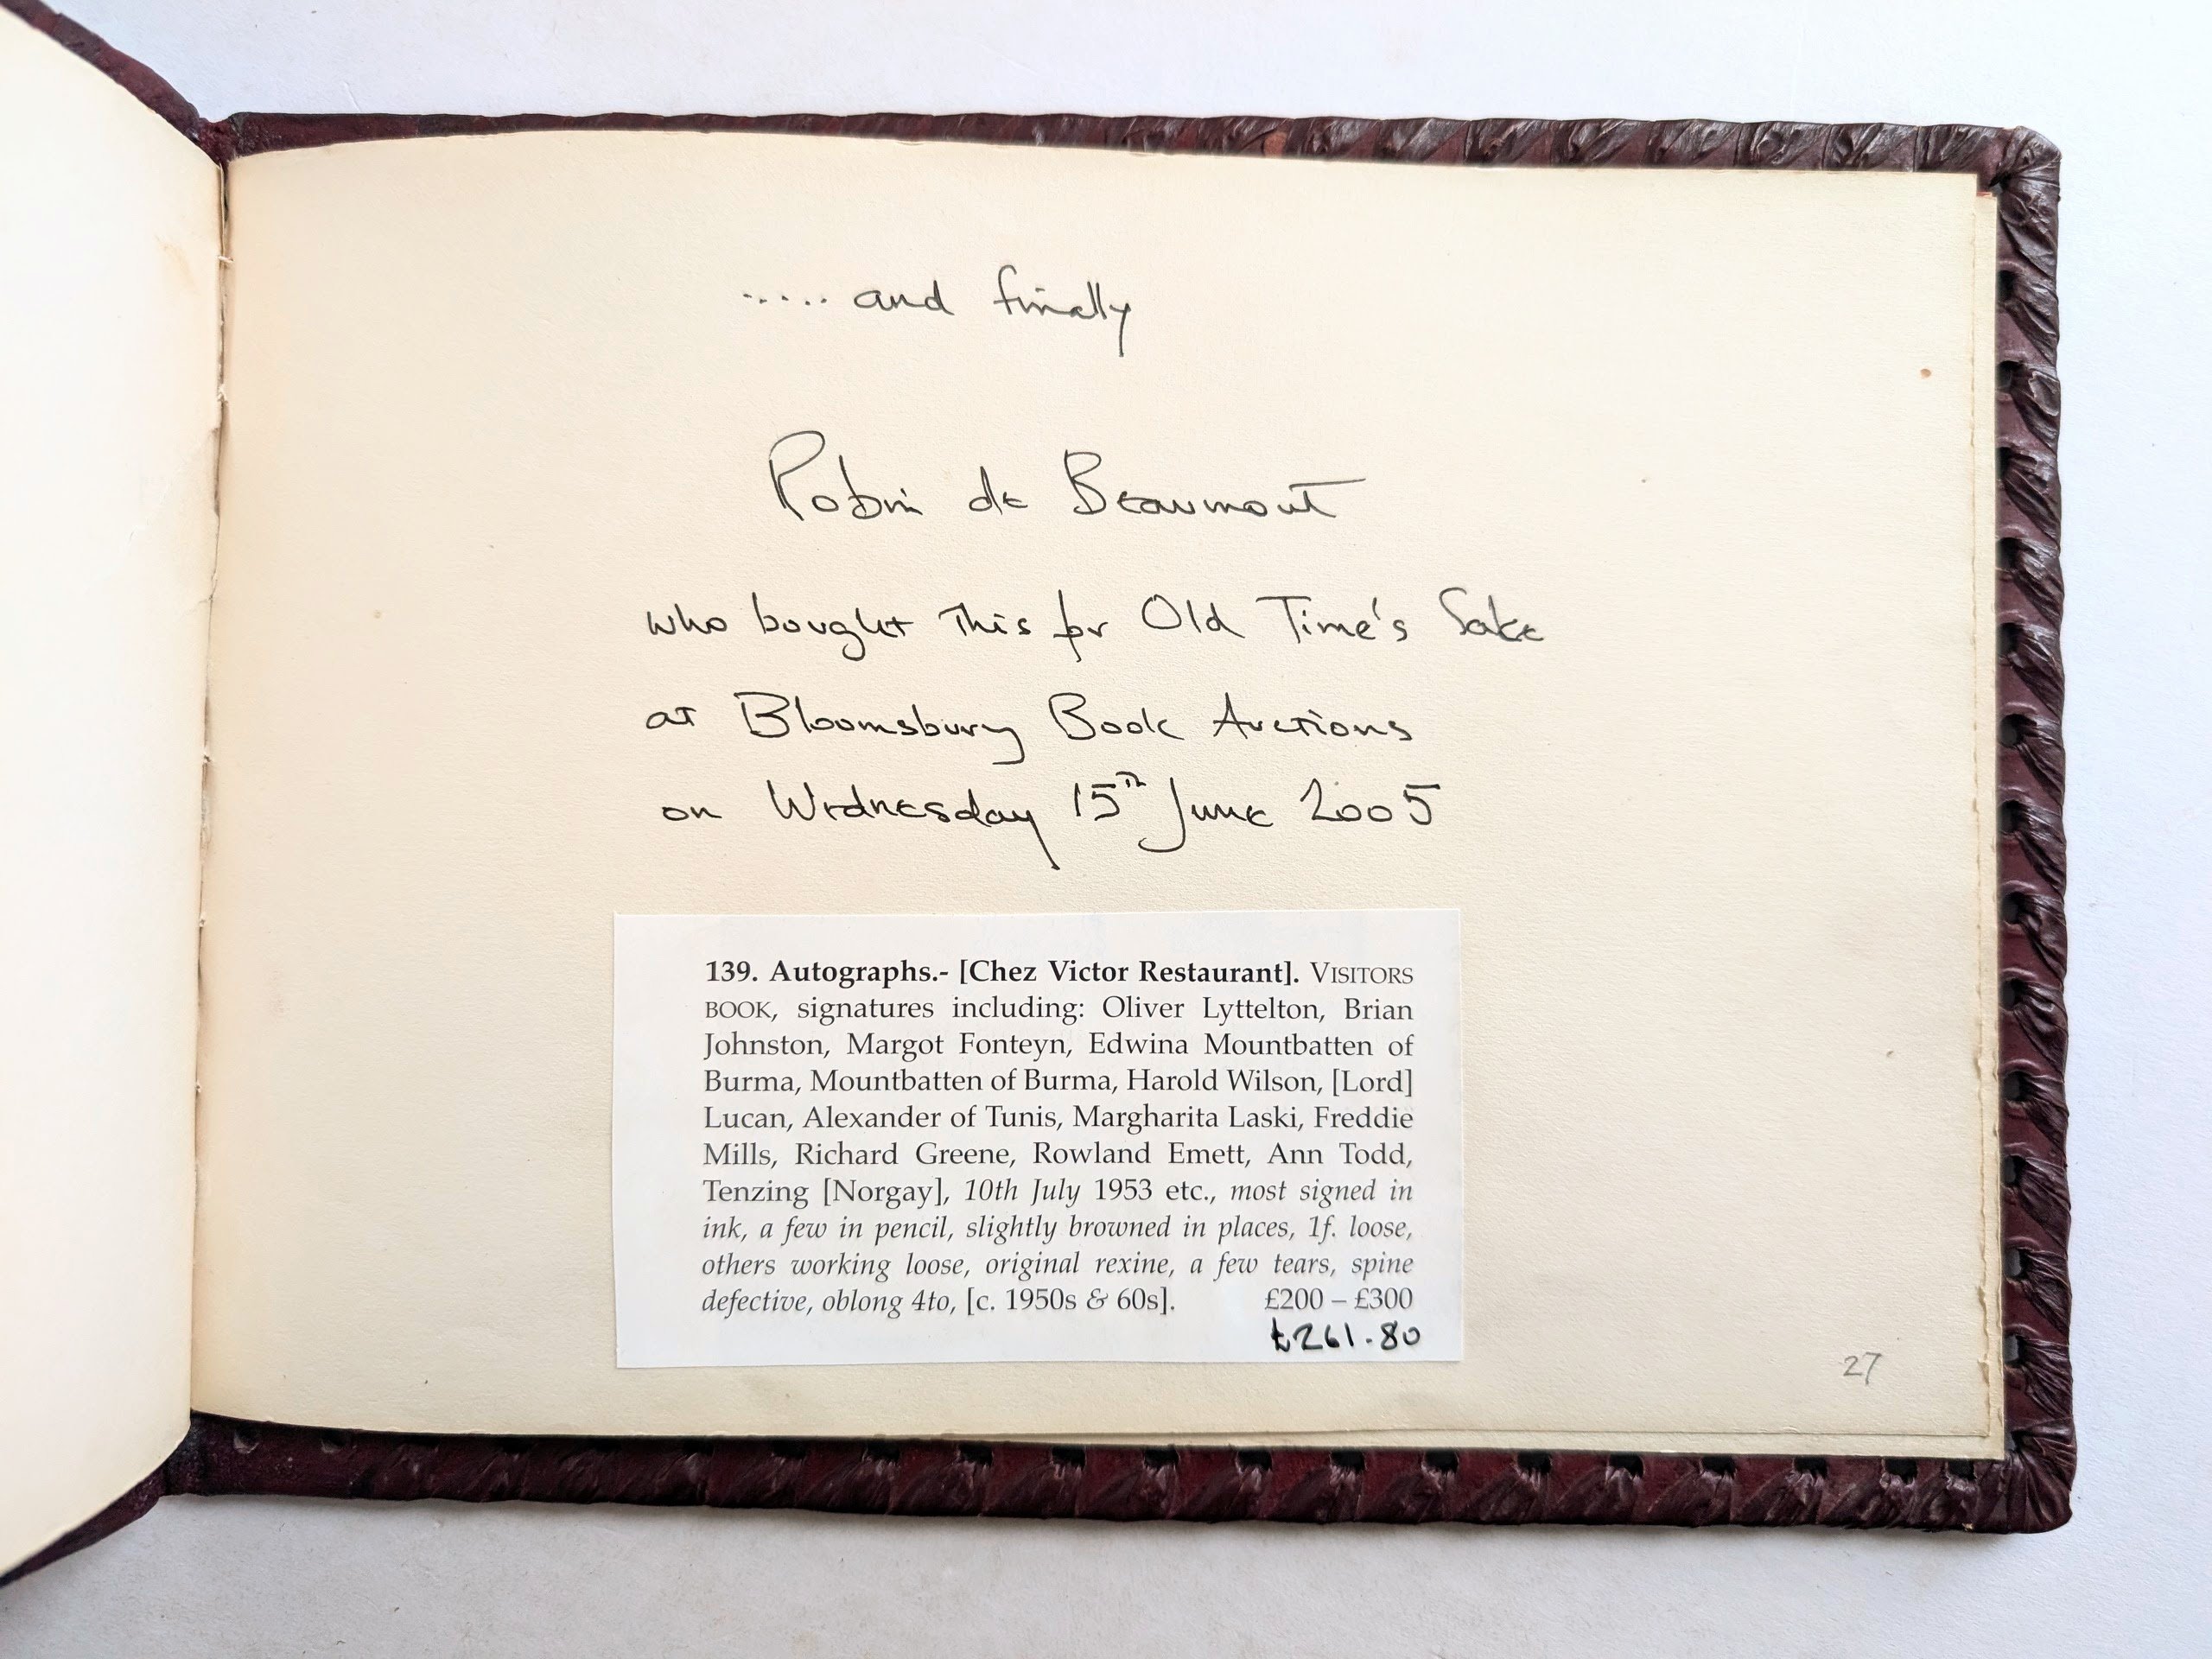 ..... and finally
Robin de Beaumont
who bought this for Old Time's Sake
at Bloomsbury Book Auctions
on Wednesday 15th June 2005
139. Autographs.- [Chez Victor Restaurant]. VISITORS
BOOK, signatures including: Oliver Lyttelton, Brian
Johnston, Margot Fonteyn, Edwina Mountbatten of
Burma, Mountbatten of Burma, Harold Wilson, [Lord]
Lucan, Alexander of Tunis, Margharita Laski, Freddie
Mills, Richard Greene, Rowland Emett, Ann Todd,
Tenzing [Norgay], 10th July 1953 etc., most signed in
ink, a few in pencil, slightly browned in places, 1f. loose,
others working loose, original rexine, a few tears, spine
defective, oblong 4to, [c. 1950s & 60s]. £200 – £300
£261.80
27